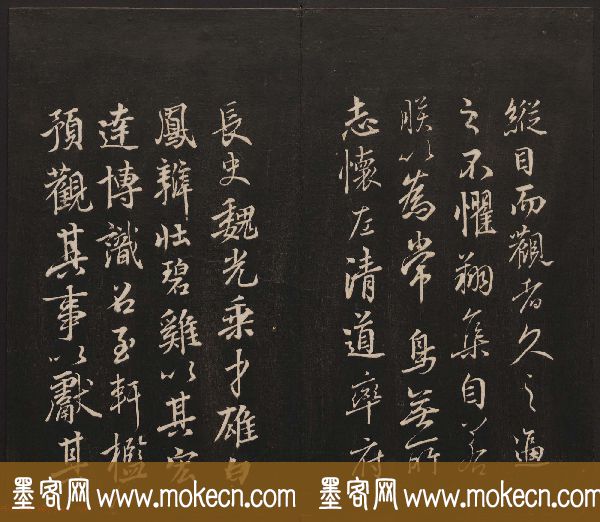 縱目而觀者久之逼
之不懼翔集自若
朕以為常鳥無所
志懷左清道率府
長史魏光乘才雄白
鳳辯壯碧雞以其宏
達博識召至軒檻
預觀其事以獻其
墨客网 www.mokecn.com 墨客网 www.mokecn.com